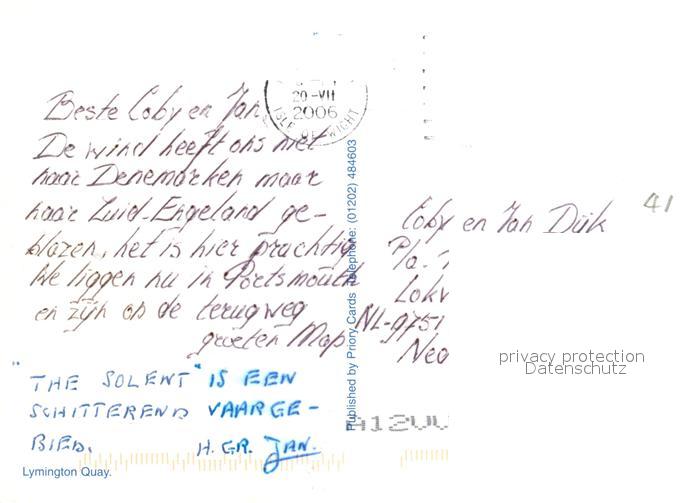 20-VII
2006
ISLE OF WIGHT
Beste Coby en Jan
De wind heeft ons niet
naar Denemarken maar
naar Zuid-Engeland ge-
blazen, het is hier prachtig
We liggen nu in Portsmouth
en zijn op de terugweg
groeten Map
"THE SOLENT" IS EEN
SCHITTEREND VAARGE-
BIED.
H. GR. JAN.
Lymington Quay.
Published by Priory Cards Telephone: (01202) 484603
41
Coby en Jan Dijk
Lokv
NL-9751
Ned
privacy protection
Datenschutz